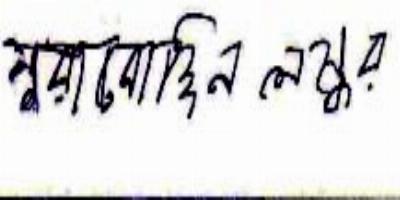 নুরাবোদ্দিন লস্কর